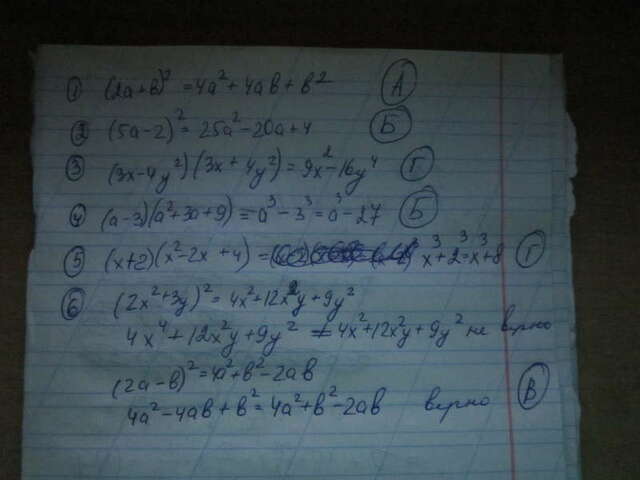 ① (2a+b)² = 4a² + 4ab + b² А
② (5a-2)² = 25a² - 20a + 4 Б
③ (3x-4y²)(3x+4y²) = 9x² - 16y⁴ Г
④ (a-3)(a²+3a+9) = a³ - 3³ = a³ - 27 Б
⑤ (x+2)(x²-2x+4) = x³+2³=x³+8 Г
⑥ (2x²+3y)² = 4x²+12x²y+9y²
4x⁴+12x²y+9y² ≠ 4x²+12x²y+9y² не верно
(2a-b)² = 4a²+b²-2ab
4a²-4ab+b² = 4a²+b²-2ab верно В